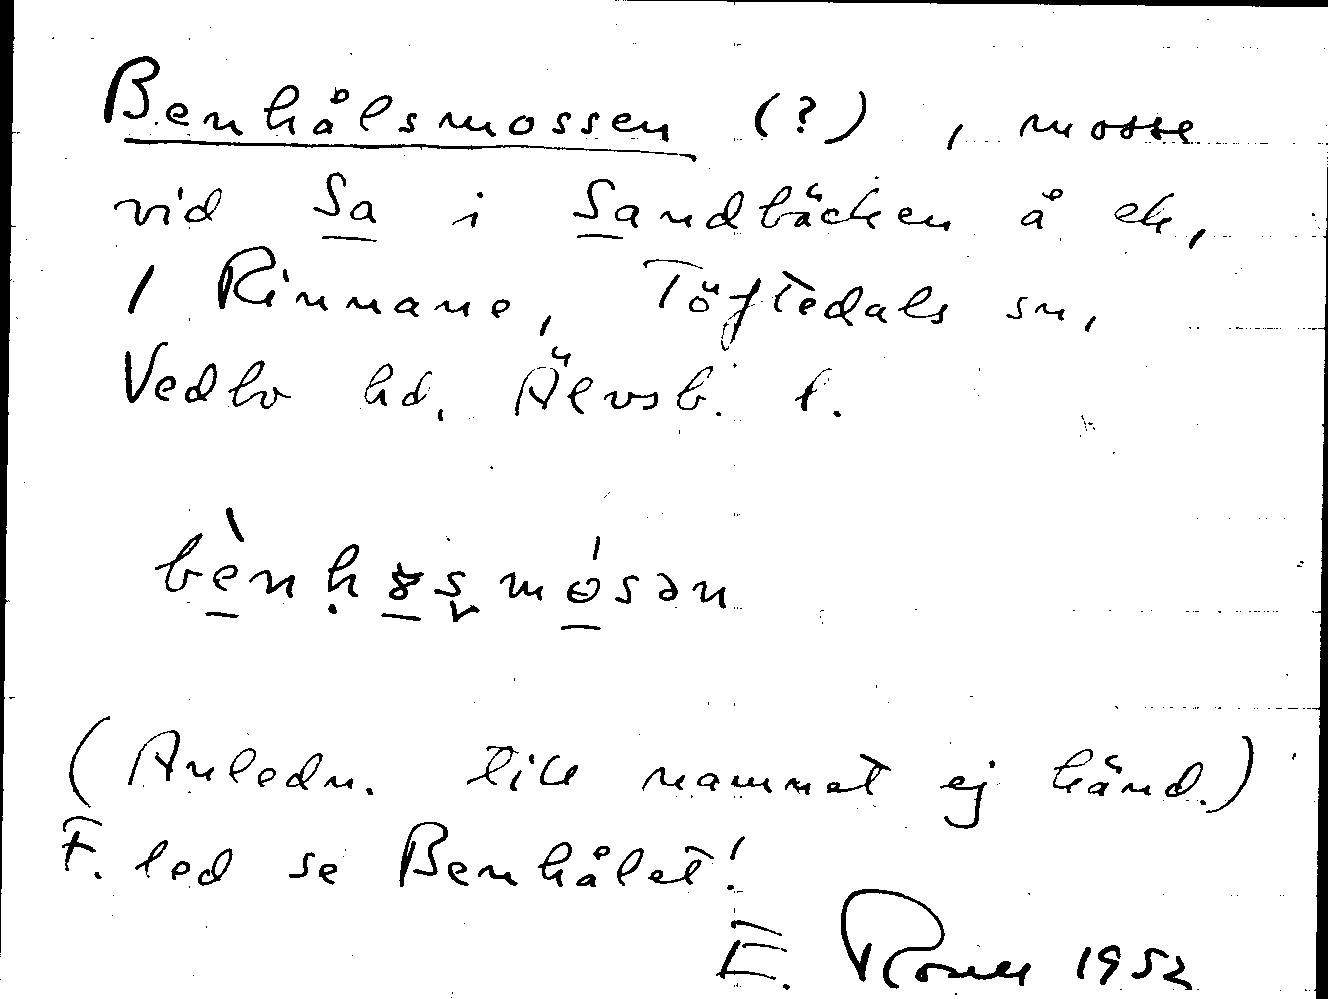 Benhålsmossen (?), mosse
vid Sa i Sandbäcken å ek,
1 Rinnane, Töftedals sn,
Vedbo hd. Älvsb. l.
(Anledn. till namnet ej känd.)
F. led se Benhålet!
E. 1952